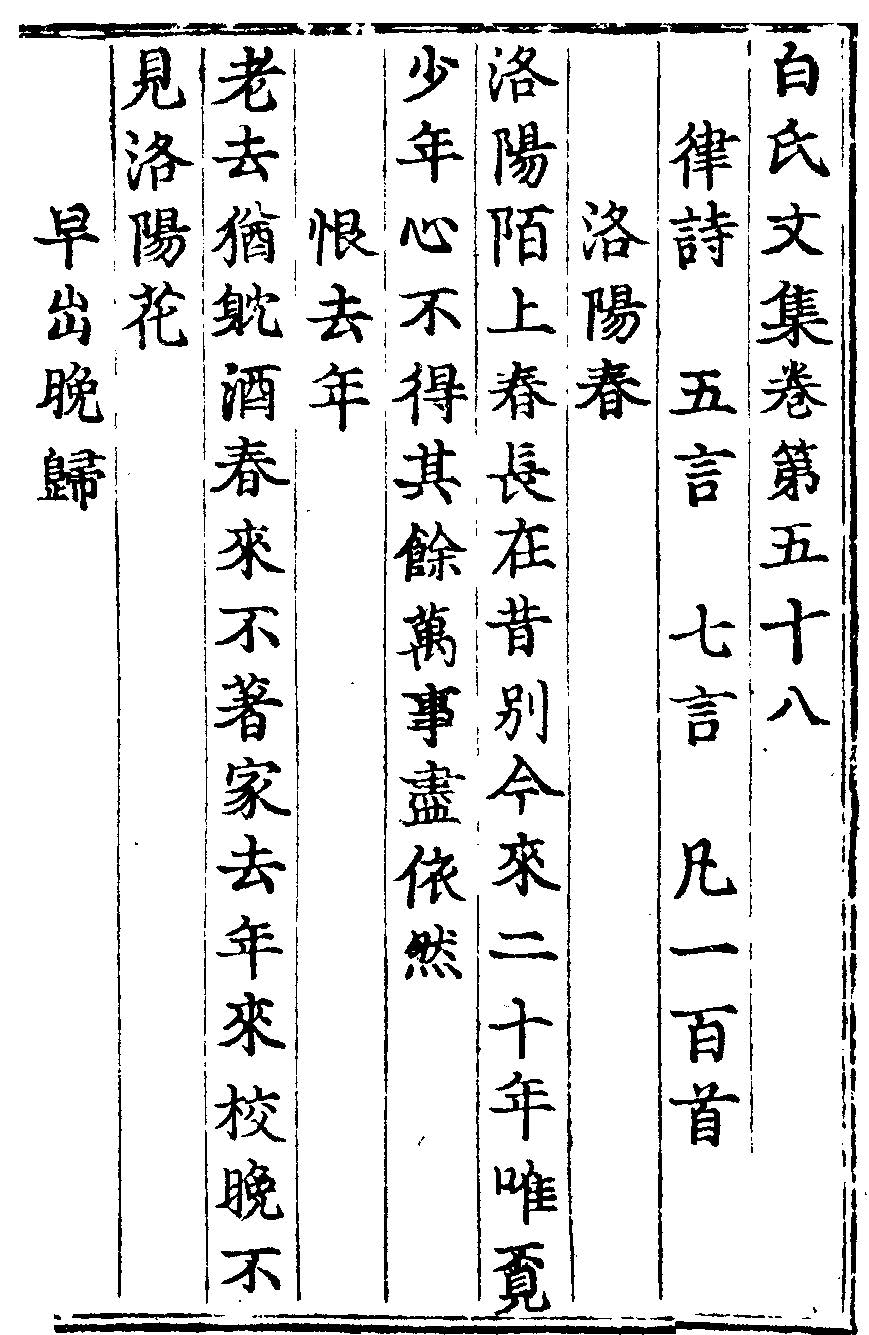 白氏文集卷第五十八
律詩 五言 七言 凡一百首
洛陽春
洛陽陌上春長在昔別今來二十年唯覓
少年心不得其餘萬事盡依然
恨去年
老去猶躭酒春來不著家去年來校晚不
見洛陽花
早出晚歸